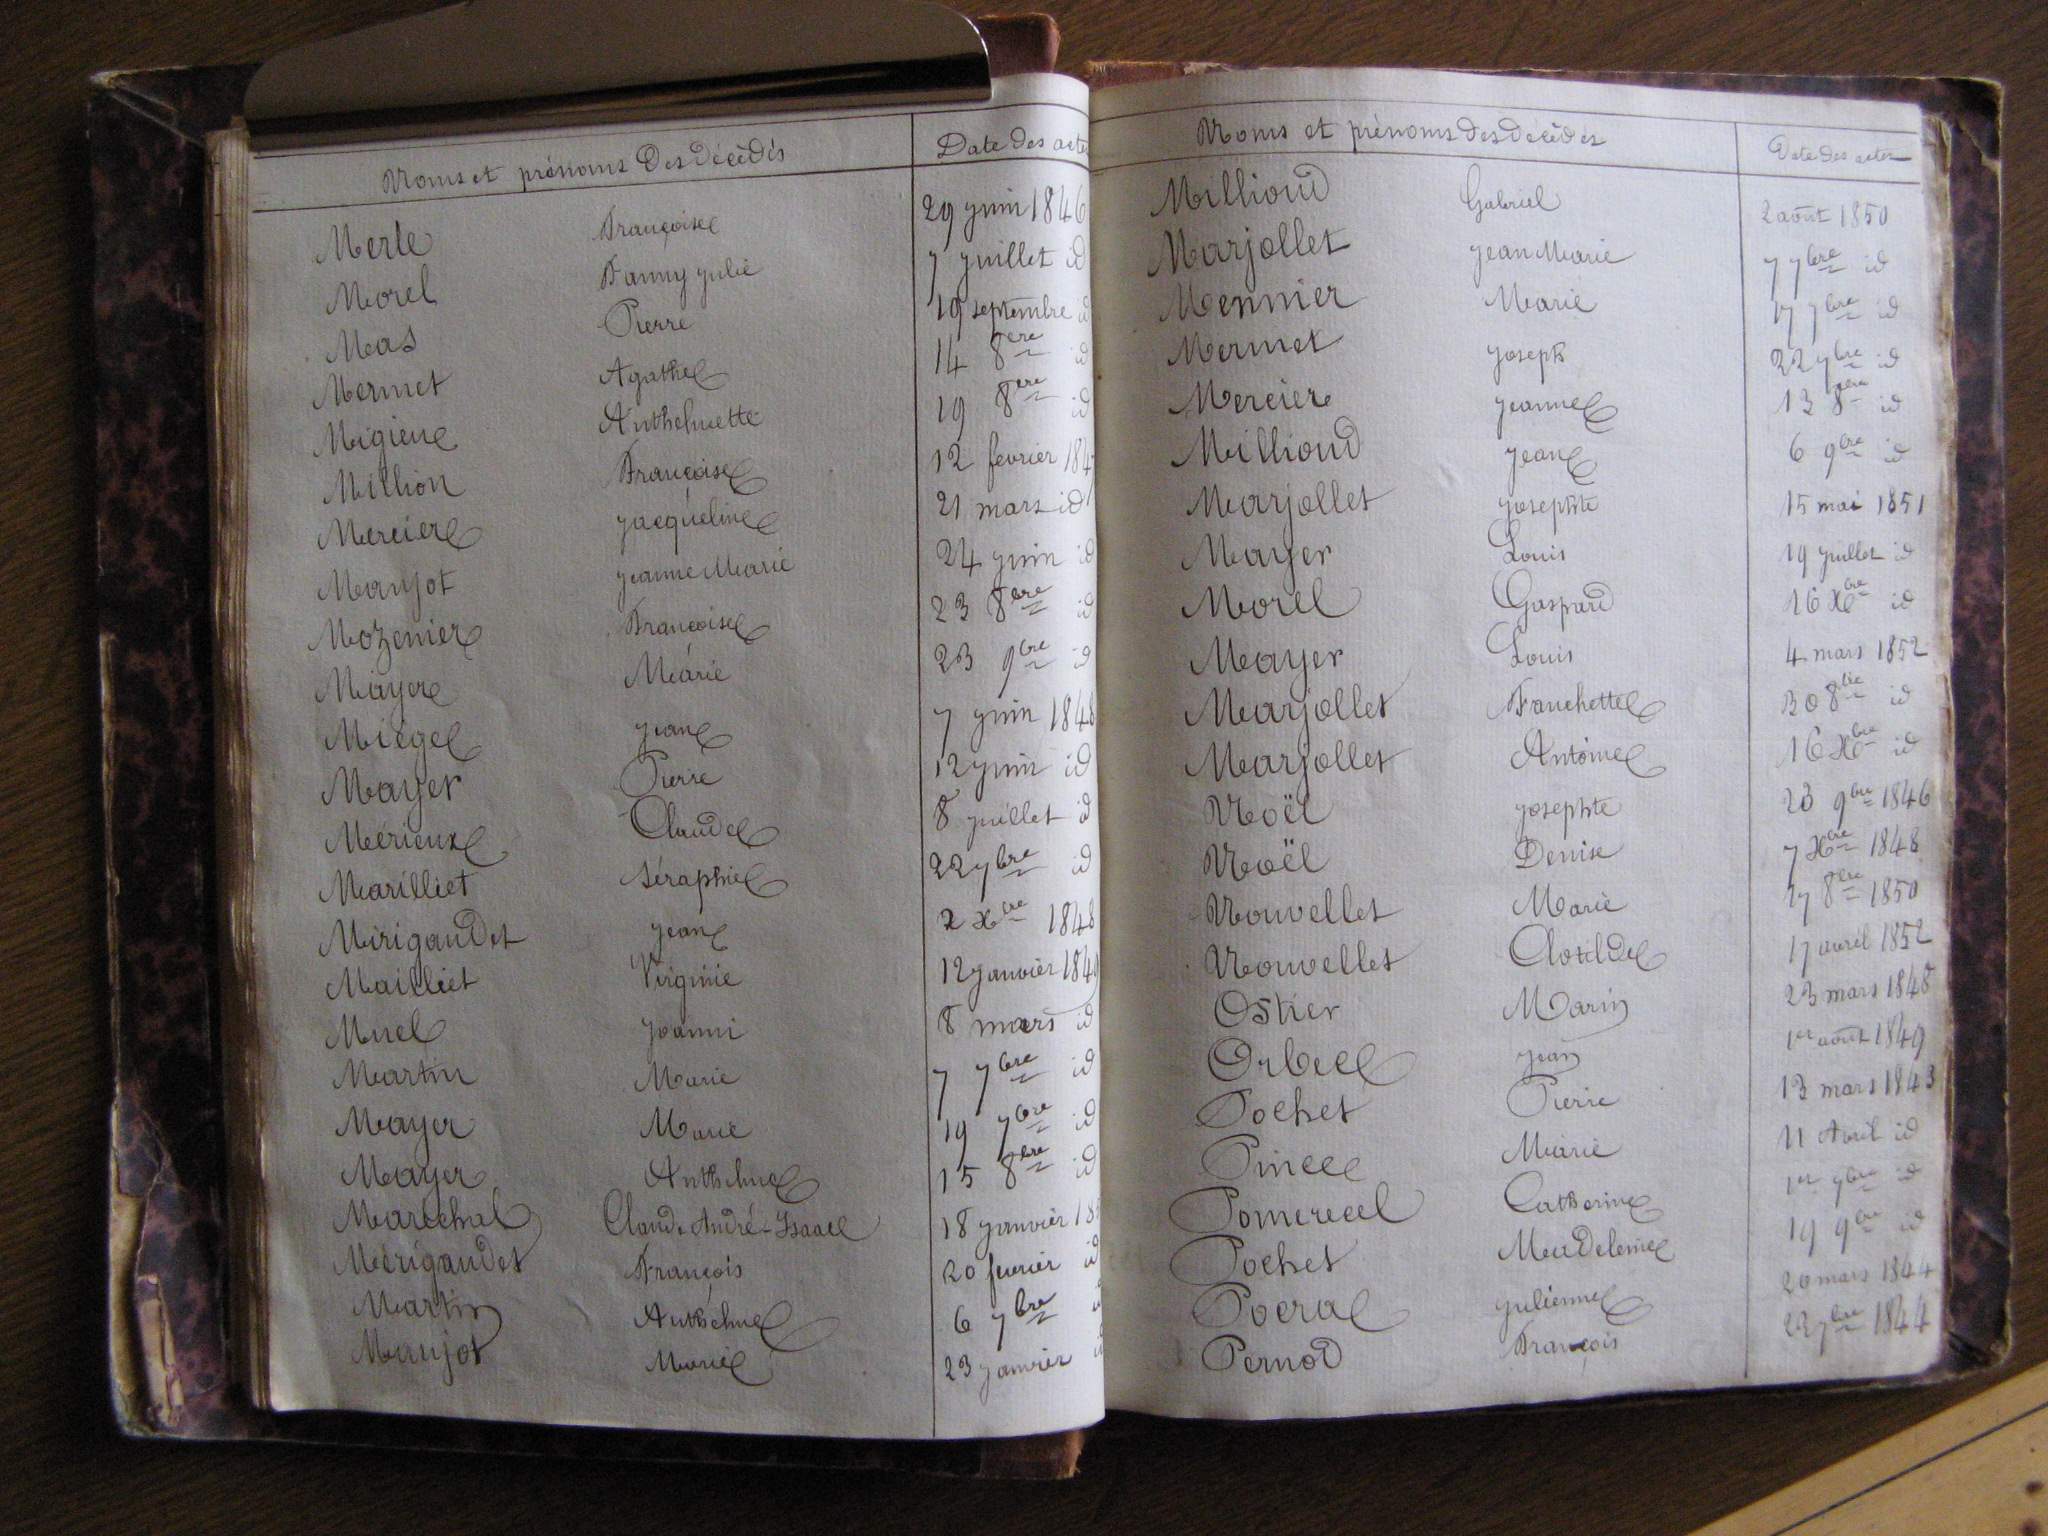 Noms et prénoms des décédés Date des actes
Merle Françoise 29 juin 1846
Morel Fanny julie 7 juillet id
Mas Pierre 19 septembre id
Mermet Agathe 14 8bre id
Migieux Anthelmette 19 8bre id
Million Françoise 12 fevrier 184
Mercier jacqueline 21 mars id
Maujot jeanne Marie 24 juin id
Mozenier Françoise 23 8bre id
Mayer Marie 23 9bre id
Miége jean 7 juin 1848
Mayer Pierre 12 juin id
Mérieux Claude 8 juillet id
Marilliet Séraphie 22 7bre id
Mirigaudet jean 2 Xbre 1848
Mailliet Virginie 12 janvier 1849
Muel joanni 8 mars id
Martin Marie 7 7bre id
Mayer Marie 19 7bre id
Mayer Anthelme 15 8bre id
Marechal Claude André-Isaac 18 janvier 185
Mérigaudet François 20 fevrier id
Martin Anthelme 6 7bre
Maujot Marie 23 janvier
Noms et prénoms des décédés Date des actes
Milliond Gabriel 2 août 1850
Marjollet jean Marie 7 7bre id
Mennier Marie 17 7bre id
Mermet joseph 22 7bre id
Mercier jeanne 13 8bre id
Milliond jean 6 9bre id
Marjollet josephte 15 mai 1851
Mayer Louis 19 juillet id
Morel Gaspard 16 Xbre id
Mayer Louis 4 mars 1852
Marjollet Fanchette 30 8bre id
Marjollet Antoine 16 Xbre id
Noël josephte 23 9bre 1846
Noël Denise 7 Xbre 1848
Nouvellet Marie 27 8bre 1850
Nouvellet Clotilde 17 avril 1852
Ostier Marin 23 mars 1848
Orbel jean 1er août 1849
Pochet Pierre 13 mars 1843
Pince Marie 11 Avril id
Pomerel Catherine 1er 9bre id
Pochet Madeleine 19 9bre id
Pocra julienne 20 mars 1844
Pernod François 22 7bre 1844